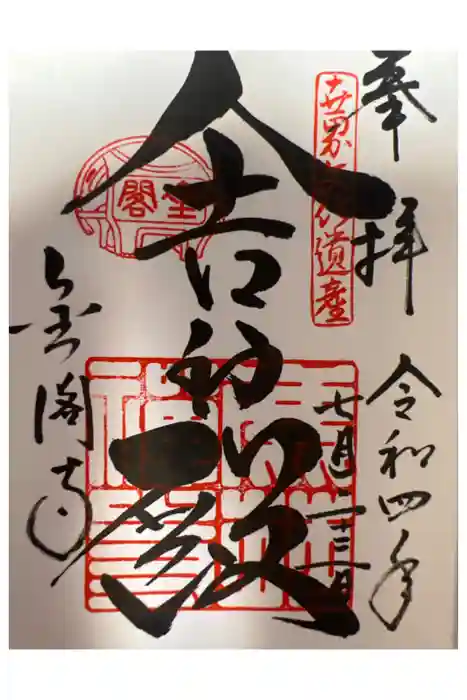 奉拝
令和四年
世界文化遺産
七月二十三日
舎利殿
金閣寺